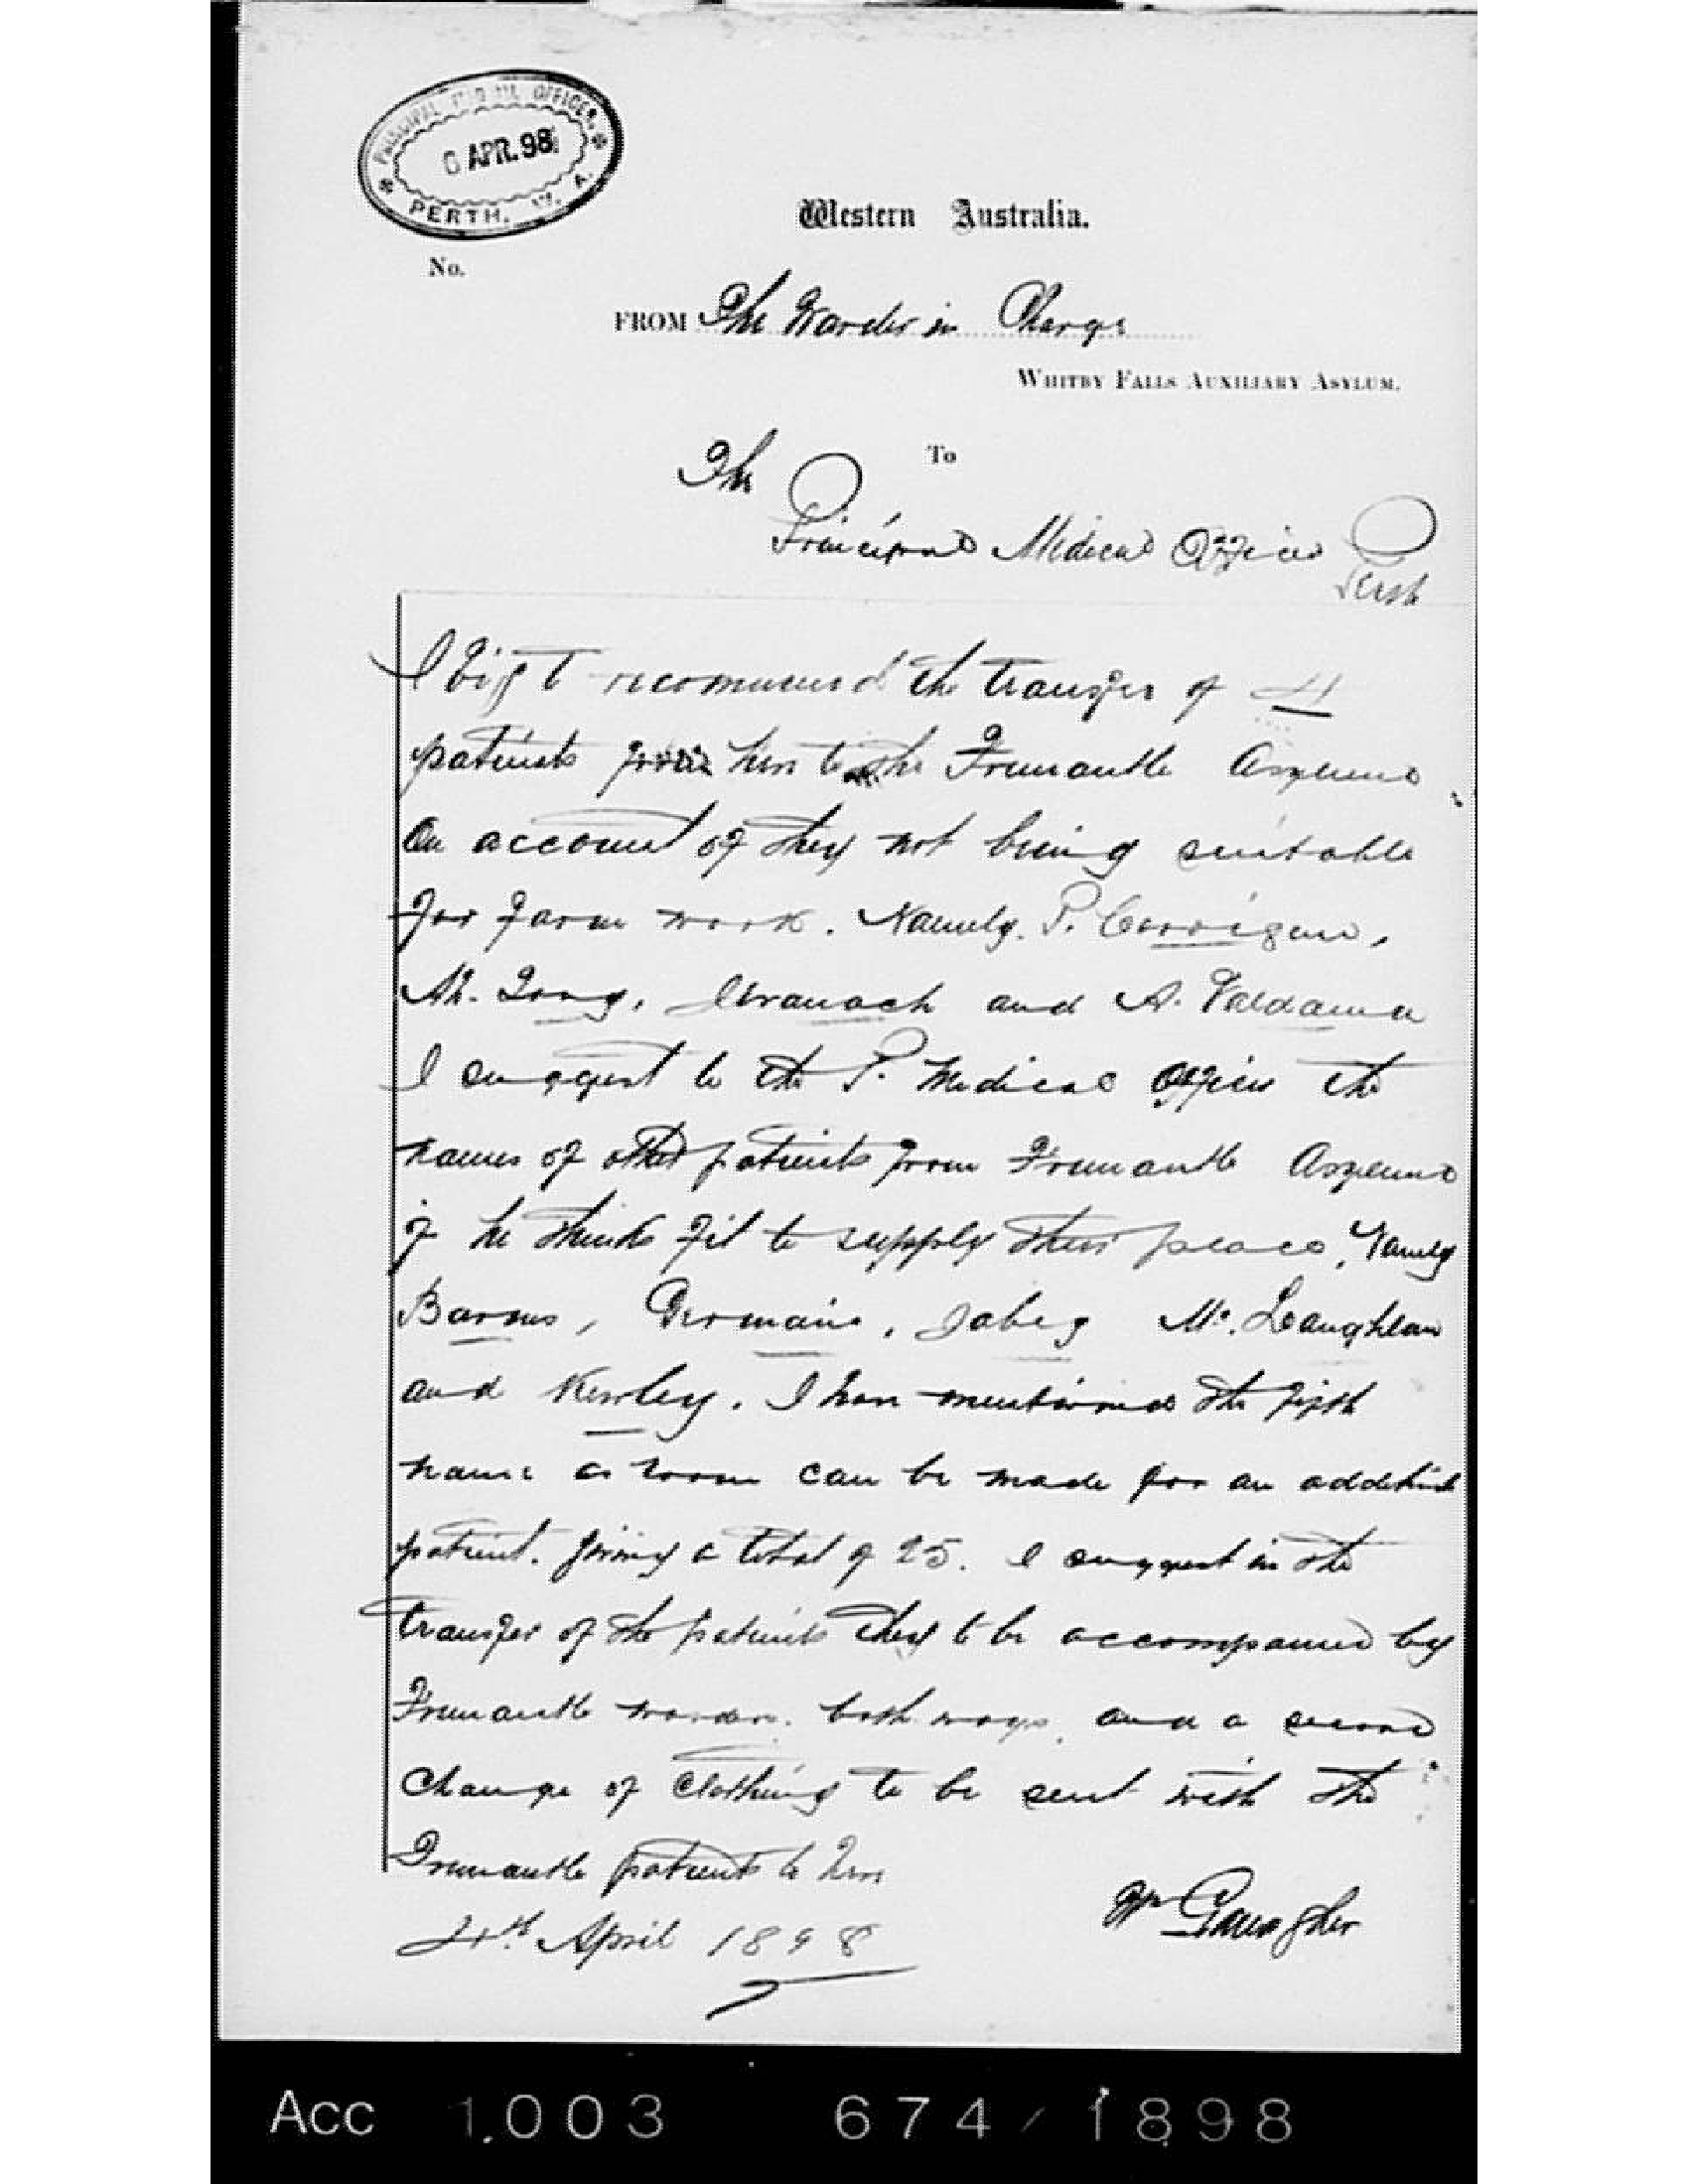 PRINCIPAL MEDICAL OFFICER
APR. 98
PERTH. W. A.
Western Australia.
No.
FROM The Warder in Charge
WHITBY FALLS AUXILIARY ASYLUM.
To
The
Principal Medical Officer Perth
I beg to recommend the transfer of 4
patients from here to the Fremantle Asylum
On account of they not being suitable
for farm work. Namely. P. Corrigan,
Ah. Long, and A. Valdama
I suggest to the P. Medical Officer the
names of other patients from Fremantle Asylum
if he thinks fit to supply their place, Namely
Barnes, Germain, Jabez Mc. Laughlan
and Kewley. I have mentioned the fifth
name as room can be made for an additional
patient. giving a total of 25. I suggest in the
transfer of the patients they to be accompanied by
Fremantle warders. both ways, and a second
change of clothing to be sent with the
Fremantle patients to here
4th April 1898
Wm Gallagher
Acc 1003 674/1898